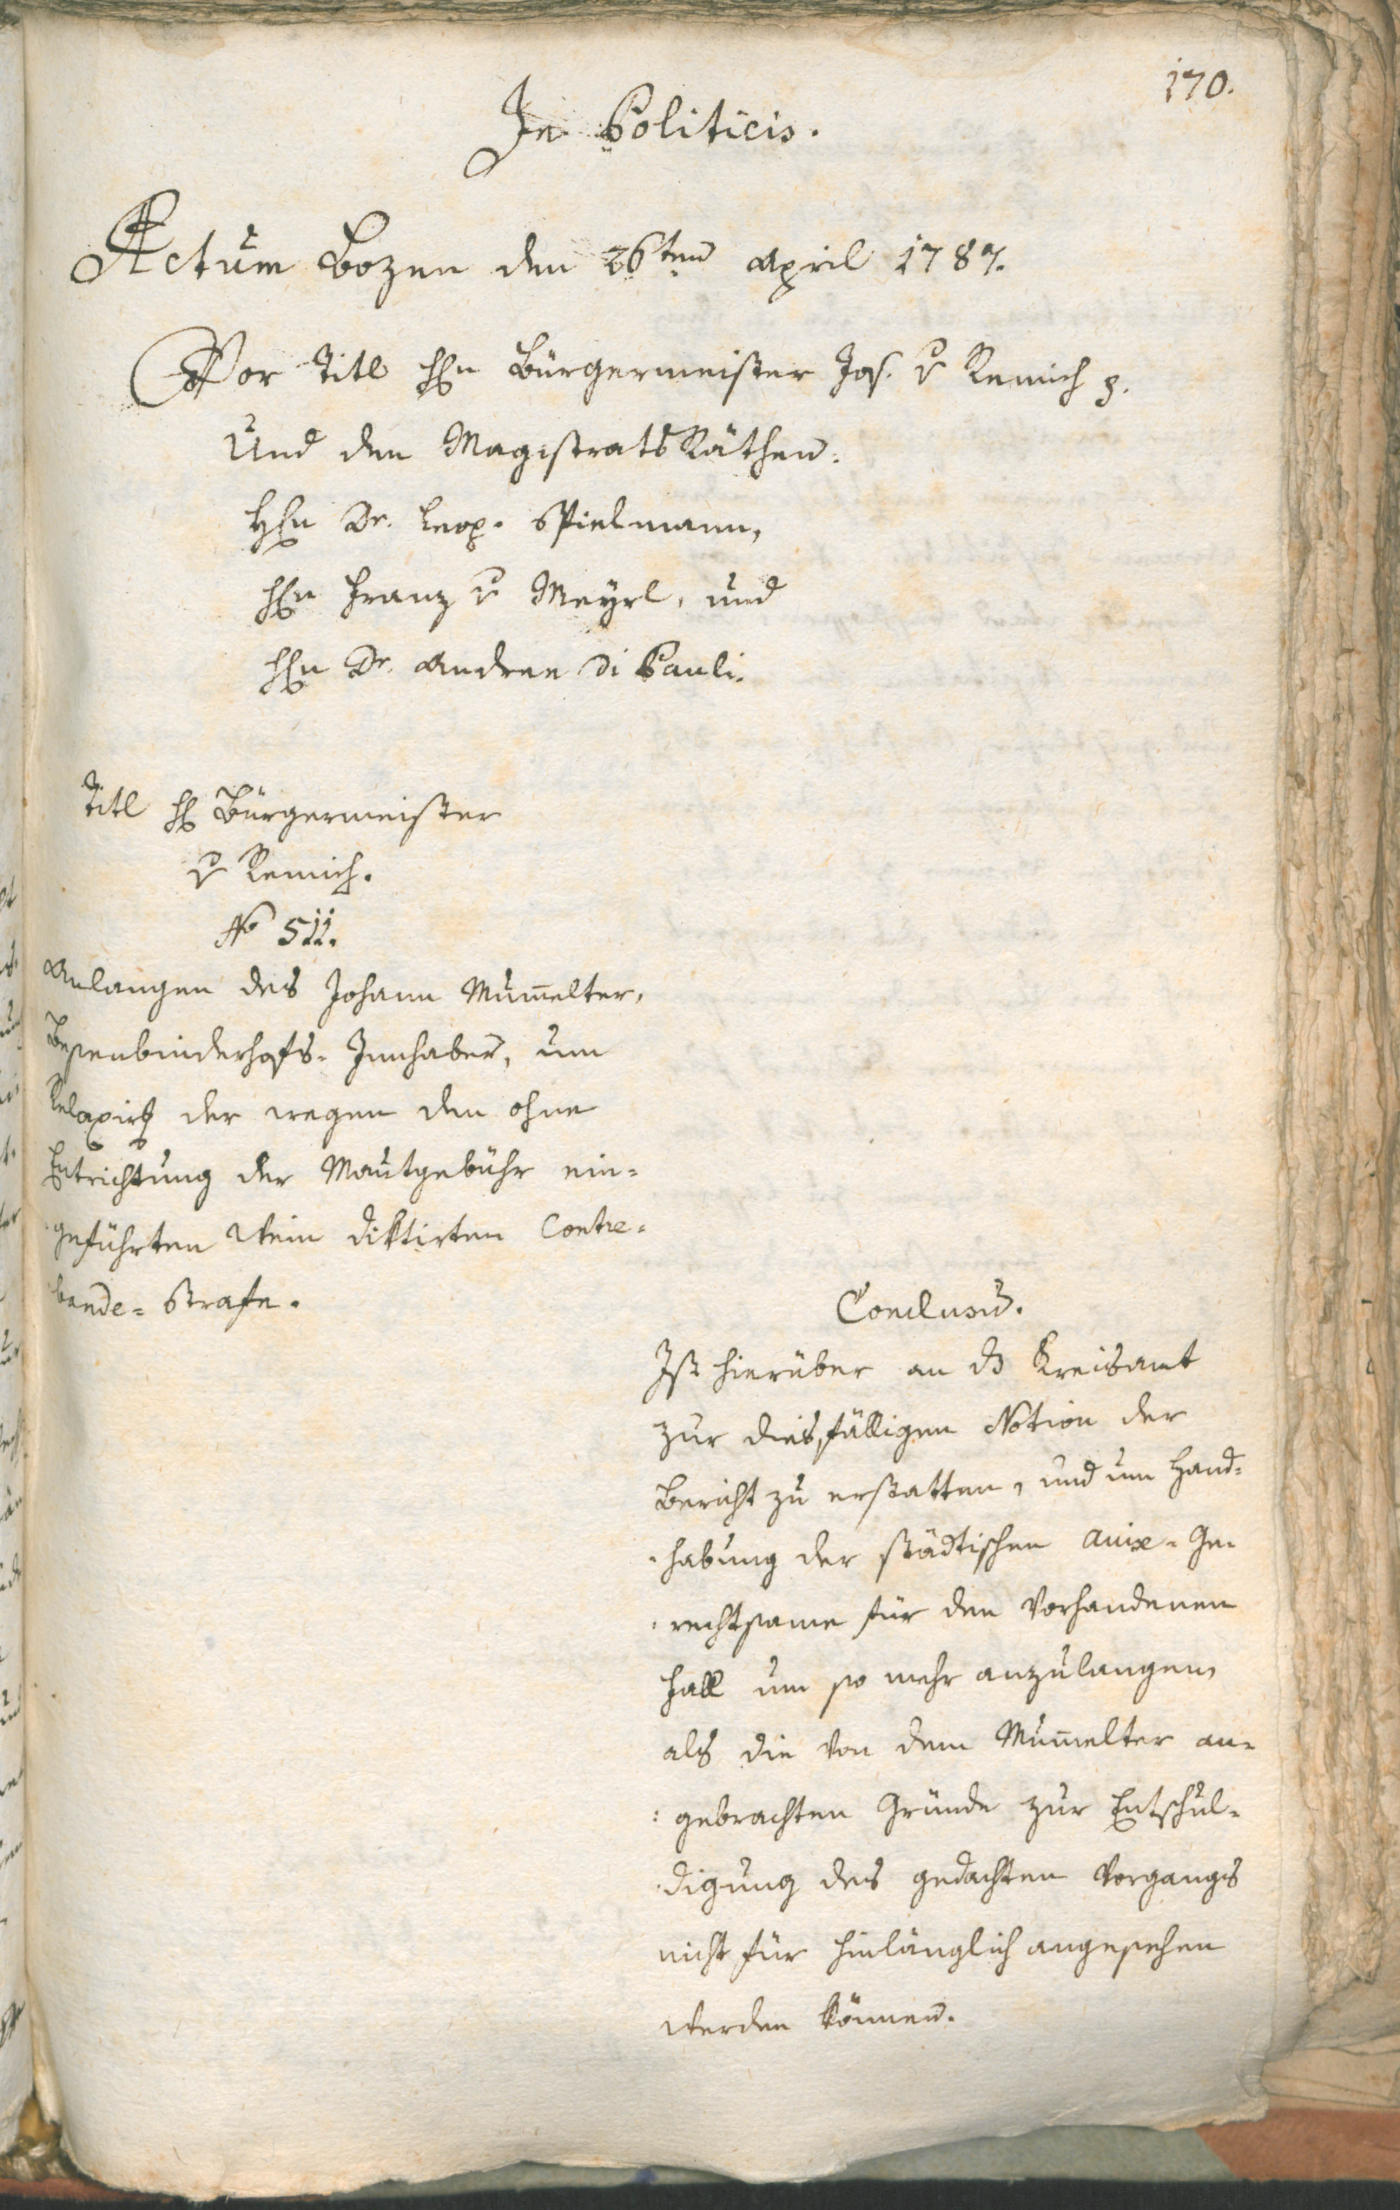 170.
In Politicis.
Actum Bozen den 26ten April 1787.
Vor Titl HEn Bürgermeister Jos. v Remich p.
Und den Magistrats Räthen.
HEn Dr. Leop. Spielmann,
HEn Franz v Meyrl, und
HEn Dr. Andree Di Pauli.
Titl HE Bürgermeister
v Remich.
No 511.
Anlangen des Johann Mum̅elter,
Besenbinderhofs-Innhaber, um
Relaxirg der wegen den ohne
Entrichtung der Mautgebühr ein=
geführten Wein diktirten Contre=
bande=Strafe.
Conclusum.
Ist hierüber an das Kreisamt
zur diesfälligen Notion der
Bericht zu erstatten, und um Hand=
habung der städtischen Accise-Ge=
rechtsame für den vorhandenen
Fall um so mehr anzulangen,
als die von dem Mum̅elter an=
gebrachten Gründe zur Entschul=
digung des gedachten Vorgangs
nicht für hinlänglich angesehen
werden können.